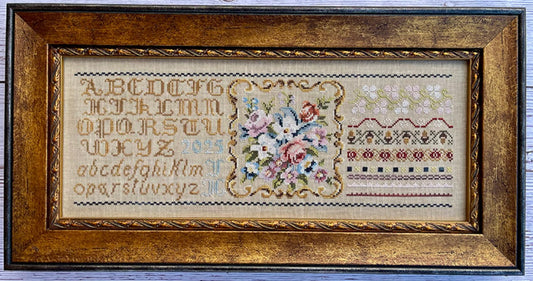 ABCDEFG
HIJKLMN
OPQRSTU
VWXYZ 2024
abcdefghijklm
opqrstuvwxyz